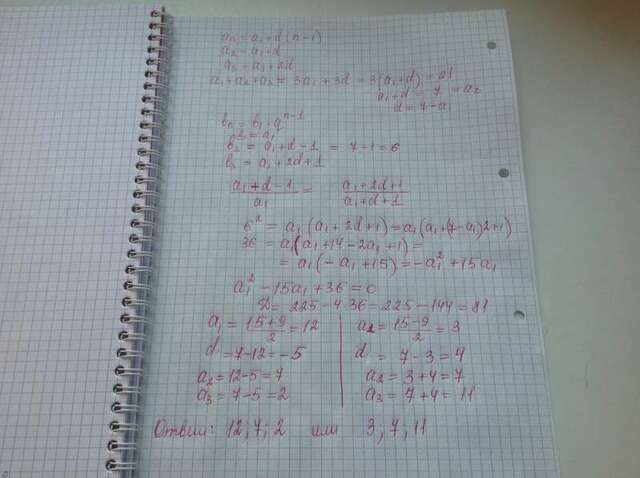 aₙ = a₁ + d(n-1)
a₂ = a₁ + d
a₃ = a₁ + 2d
a₁ + a₂ + a₃ = 3a₁ + 3d = 3(a₁ + d) = 21
a₁ + d = 7 = a₂
d = 7 - a₁
bₙ = b₁ · qⁿ⁻¹
b₁ = a₁
b₂ = a₁ + d - 1 = 7 - 1 = 6
b₃ = a₁ + 2d + 1
(a₁ + d - 1)/a₁ = (a₁ + 2d + 1)/(a₁ + d + 1)
6² = a₁(a₁ + 2d + 1) = a₁(a₁ + (7 - a₁)2 + 1)
36 = a₁(a₁ + 14 - 2a₁ + 1) =
= a₁(-a₁ + 15) = -a₁² + 15a₁
a₁² - 15a₁ + 36 = 0
D = 225 - 4·36 = 225 - 144 = 81
a₁ = (15+9)/2 = 12 | a₂ = (15-9)/2 = 3
d = 7 - 12 = -5 | d = 7 - 3 = 4
a₂ = 12 - 5 = 7 | a₂ = 3 + 4 = 7
a₃ = 7 - 5 = 2 | a₃ = 7 + 4 = 11
Ответ: 12, 7, 2 или 3, 7, 11